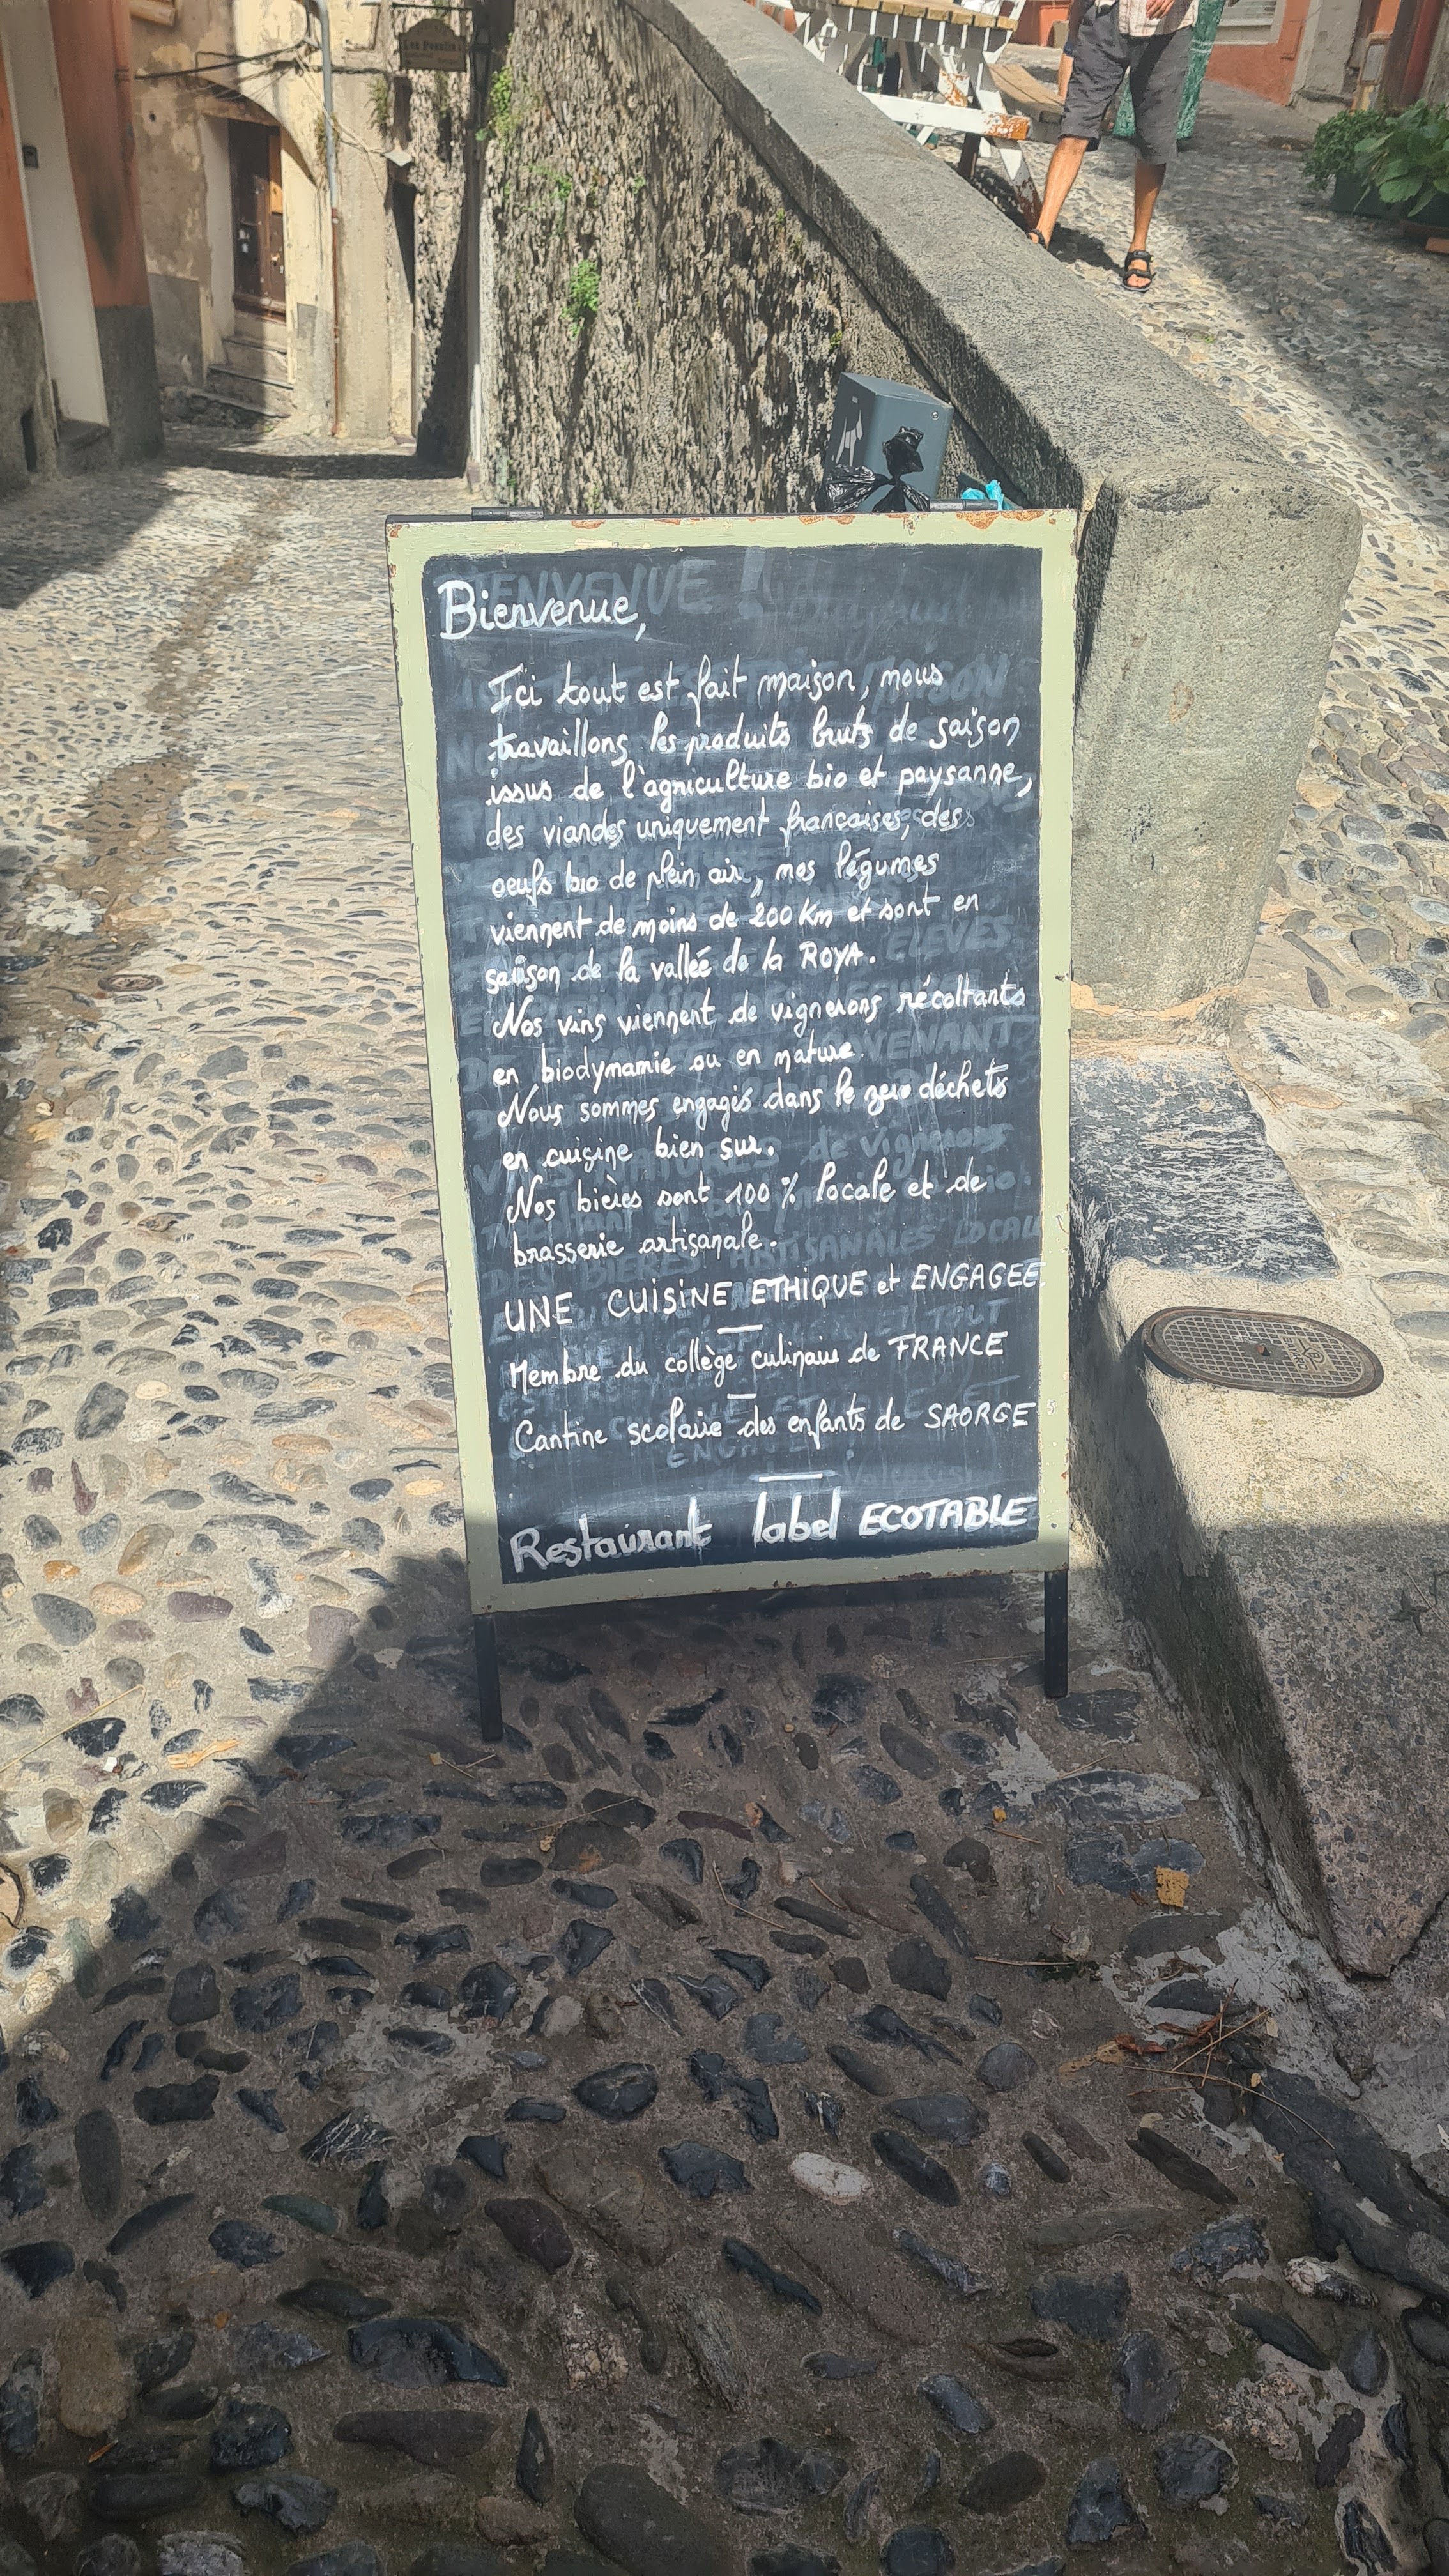 Bienvenue,
Ici tout est fait maison, nous
travaillons les produits bruts de saison
issus de l'agriculture bio et paysanne,
des viandes uniquement francaises, des
oeufs bio de plein air, nos légumes
viennent de moins de 200 Km et sont en
saison de la vallée de la ROYA.
Nos vins viennent de vignerons récoltants
en biodynamie ou en nature.
Nous sommes engagés dans le zero déchets
en cuisine bien sur.
Nos bières sont 100 % locale et de
brasserie artisanale.
UNE CUISINE ETHIQUE et ENGAGEE
Membre du collège culinaire de FRANCE
Cantine scolaire des enfants de SAORGE
Restaurant label ECOTABLE